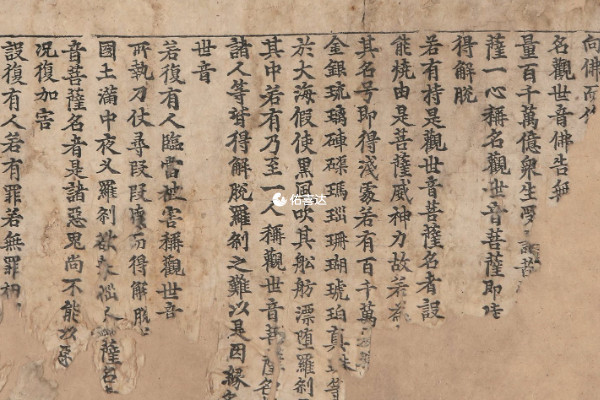 向佛而
名觀世音佛告無
量百千萬億眾生受諸苦
薩一心稱名觀世音菩薩即時
得解脫
若有持是觀世音菩薩名者設
能燒由是菩薩威神力故若為
其名号即得淺處若有百千萬
金銀琉璃硨磲瑪瑙珊瑚琥珀真珠等
於大海假使黑風吹其舩舫漂墮羅剎
其中若有乃至一人稱觀世音菩薩名
諸人等皆得解脫羅剎之難以是因緣
世音
若復有人臨當被害稱觀世音
所執刀仗尋段段壞而得解脫
國土滿中夜叉羅剎欲來惱人薩名
音菩薩名者是諸惡鬼尚不能以惡
況復加害
設復有人若有罪若無罪